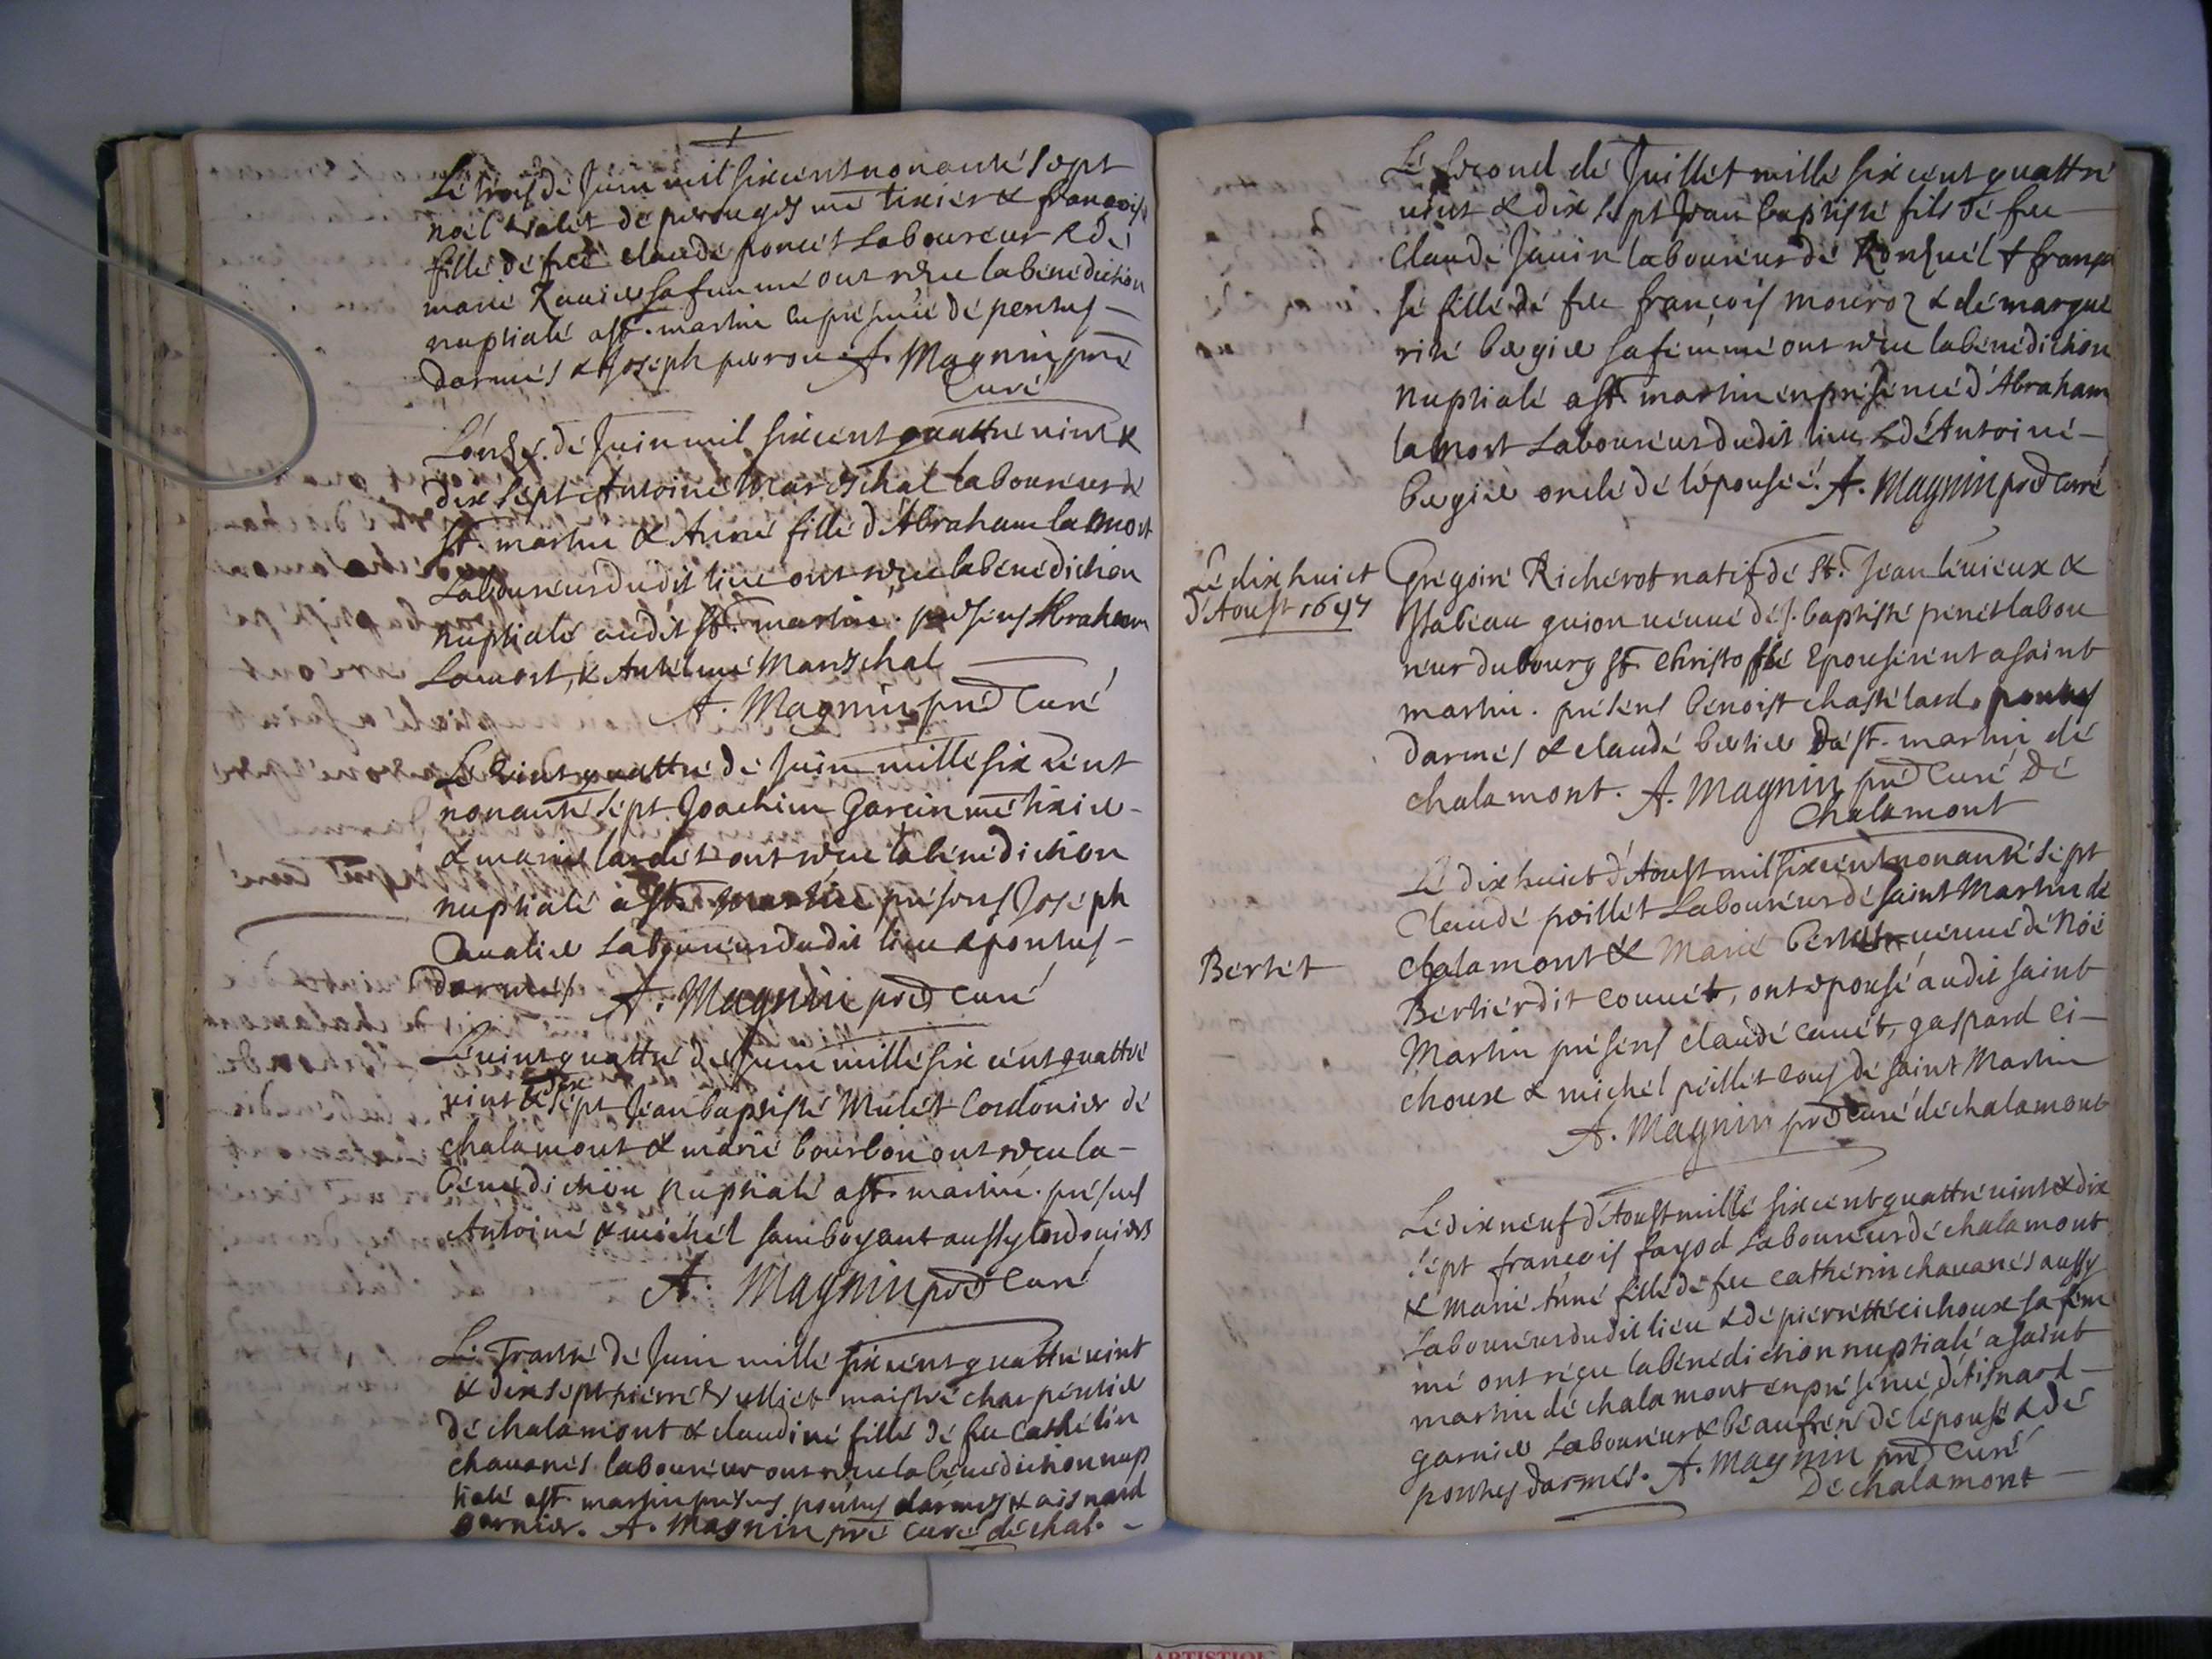 Le trois de Juin mil six cent nonante sept
noel violet de perouges me tixier & françoise
fille de feu claude poncet Laboureur & de
marie Rauier sa femme ont receu la benediction
nuptiale a st. martin en presence de pontus
darmes & Joseph perron A. Magnin pre
Curé
L'onze de Juin mil six cent quattre vint &
dix sept Antoine Mareschal laboureur de
st. martin & Anne fille d'Abraham lamort
Laboureur dudit lieu ont receu la benediction
nuptiale audit st. martin. presens Abraham
Lamort, & Antelme Mareschal
A. Magnin pre Curé
Le vint quattre de Juin mille six cent
nonante sept Joachim Garcin me tixier
& marie lardet ont receu la benediction
nuptiale a st. martin presens Joseph
Cavalier Laboureur dudit lieu & pontus
Darmes A. Magnin pre Curé
Le vint quattre de Juin mille six cent quattre
vint & dix sept Jean baptiste Mulet Cordonier de
chalamont & marie bourbon ont receu la
benediction nuptiale a st. martin. presens
Antoine & michel samboyant aussy cordoniers
A. Magnin pre Curé
Le Trante de Juin mille six cent quattre vint
& dix sept pierre Vulliet maistre charpentier
de chalamont & claudine fille de feu Cathelin
chavanes laboureur ont receu la benediction nup
tiale a st. martin presens pontus darmes & aisnard
garnier. A. Magnin pre Curé de chal.
Le second de Juillet mille six cent quattre
vint & dix sept Jean baptiste fils de feu
Claude Janin laboureur de Ronzuel & françoi
se fille de feu françois mouroz & de margue
rite bergier sa femme ont receu la benediction
nuptiale a st. martin en presence d'Abraham
lamort Laboureur dudit lieu & de Antoine
bergier oncle de l'épousée. A. Magnin pre Curé
Le dix huict
d'Aoust 1697
Gregoire Richerot natif de St. Jean le vieux &
Isabeau guion veuve de J. baptiste penet labou
reur du bourg st. Christoffle Epouserent a saint
martin. presens benoist chastelard, pontus
darmes & claude bertier de st. martin de
chalamont. A. Magnin pre Curé De
Chalamont
Le dix huict d'Aoust mil six cent nonante sept
Claude poillet Laboureur de saint Martin de
chalamont & Marie Bertet veuve de Noé
Bertet
Bertier dit Couvet, ont epousé audit saint
Martin presens claude cauet, gaspard ci
choux & michel peillet tous de saint Martin
A. Magnin pre curé de chalamont
Le dix neuf d'Aoust mille six cent quattre vint & dix
sept françois fayod Laboureur de chalamont
& Marie Anne fille de feu Catherin chavanes aussy
Laboureur dudit lieu & de pierrette cichoux sa fem
me ont reçu la benediction nuptiale a saint
martin de chalamont en presence d'Aisnard
garnier Laboureur & beaufrere de l'épouse & de
pontus darmes. A. Magnin pre Curé
De chalamont